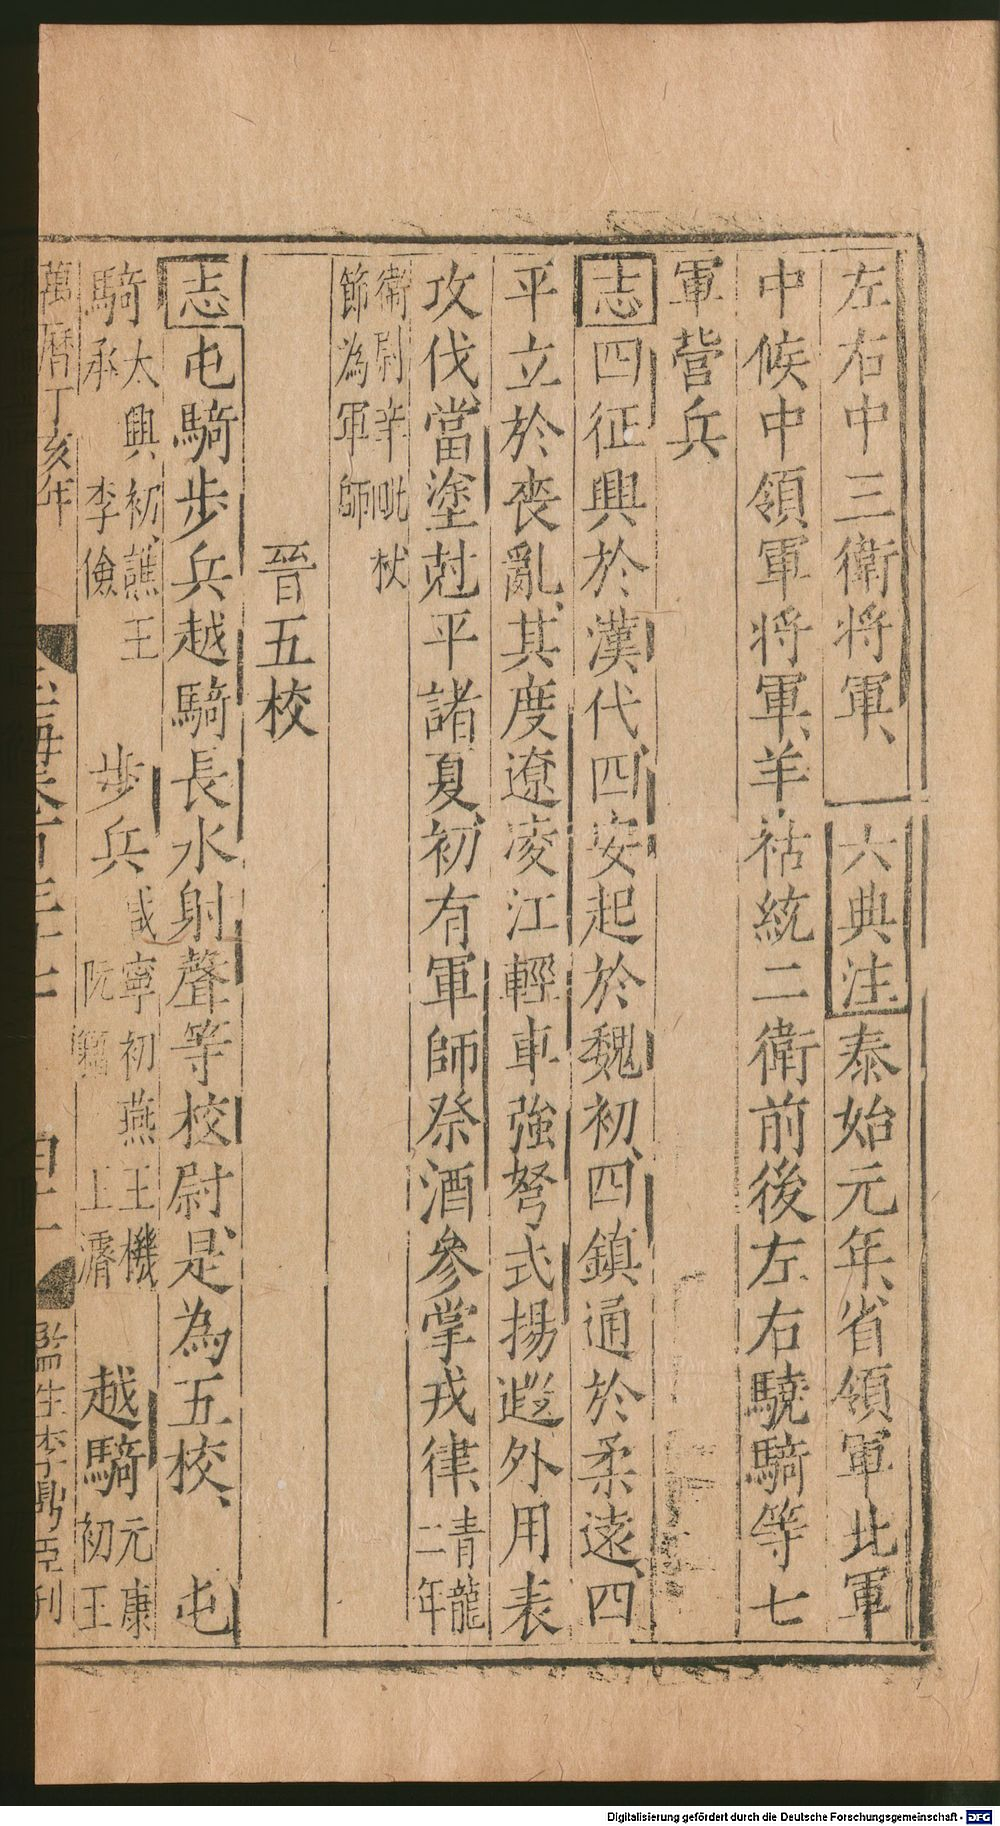 左右中三衛將軍、六典注泰始元年省領軍北軍
中候中領軍將軍羊祜統二衛前後左右驍騎等七
軍營兵
志四征興於漢代四安起於魏初四鎮通於柔遠四
平立於喪亂其度遼凌江輕車強弩式揚遐外用表
攻伐當塗尅平諸夏初有軍師祭酒參掌戎律青龍二年
衛尉辛毗杖節為軍師
晉五校
志屯騎步兵越騎長水射聲等校尉是為五校、屯
騎太興初譙王承 李儉 步兵咸寧初燕王機 阮籍 上濳 越騎元康初王
萬曆丁亥年 玉海卷百三十七 監生李鼎臣刊
Digitalisierung gefördert durch die Deutsche Forschungsgemeinschaft - DFG